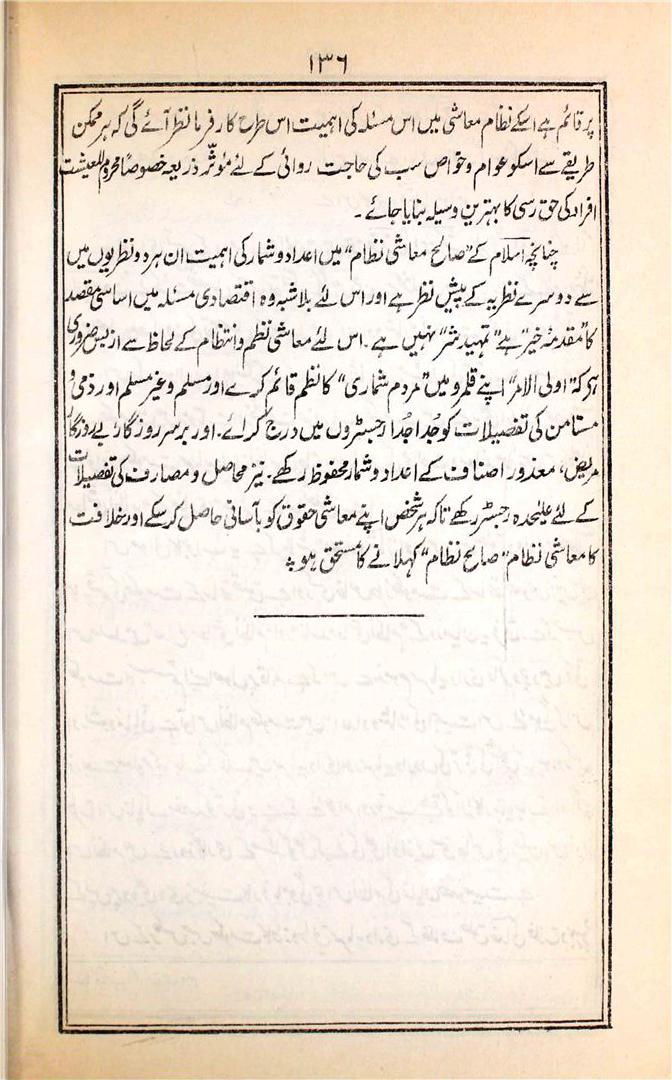 ۱۳۶
پر قائم ہے اسکے نظام معاشی میں اس مسئلہ کی اہمیت اس طرح کارفرما نظر آئے گی کہ ہر ممکن
طریقے سے اسکو عوام و خواص سب کی حاجت روائی کے لئے مؤثر ذریعہ خصوصاً محروم المعیشت
افراد کی حق رسی کا بہترین وسیلہ بنایا جائے۔
چنانچہ اسلام کے "صالح معاشی نظام" میں اعداد و شمار کی اہمیت ان ہر دو نظریوں میں
سے دوسرے نظریہ کے پیش نظر ہے اور اس لئے بلاشبہ وہ اقتصادی مسئلہ میں اساسی مقصد
کا "مقدمۂ خیر" ہے "تمہید شر" نہیں ہے۔ اس لئے معاشی نظم و انتظام کے لحاظ سے ازبس ضروری
ہی کہ "اولی الامر" اپنے قلمرو میں "مردم شماری" کا نظم قائم کرے اور مسلم و غیر مسلم اور ذمی و
مستامن کی تفصیلات کو جُدا جُدا رجسٹروں میں درج کرائے۔ اور برسر روزگار، بے روزگار
مریض، معذور اصناف کے اعداد و شمار محفوظ رکھے۔ نیز محاصل و مصارف کی تفصیلات
کے لئے علیٰحدہ رجسٹر رکھے تاکہ ہر شخص اپنے معاشی حقوق کو بآسانی حاصل کر سکے اور خلافت
کا معاشی نظام "صالح نظام" کہلانے کا مستحق ہو ؞